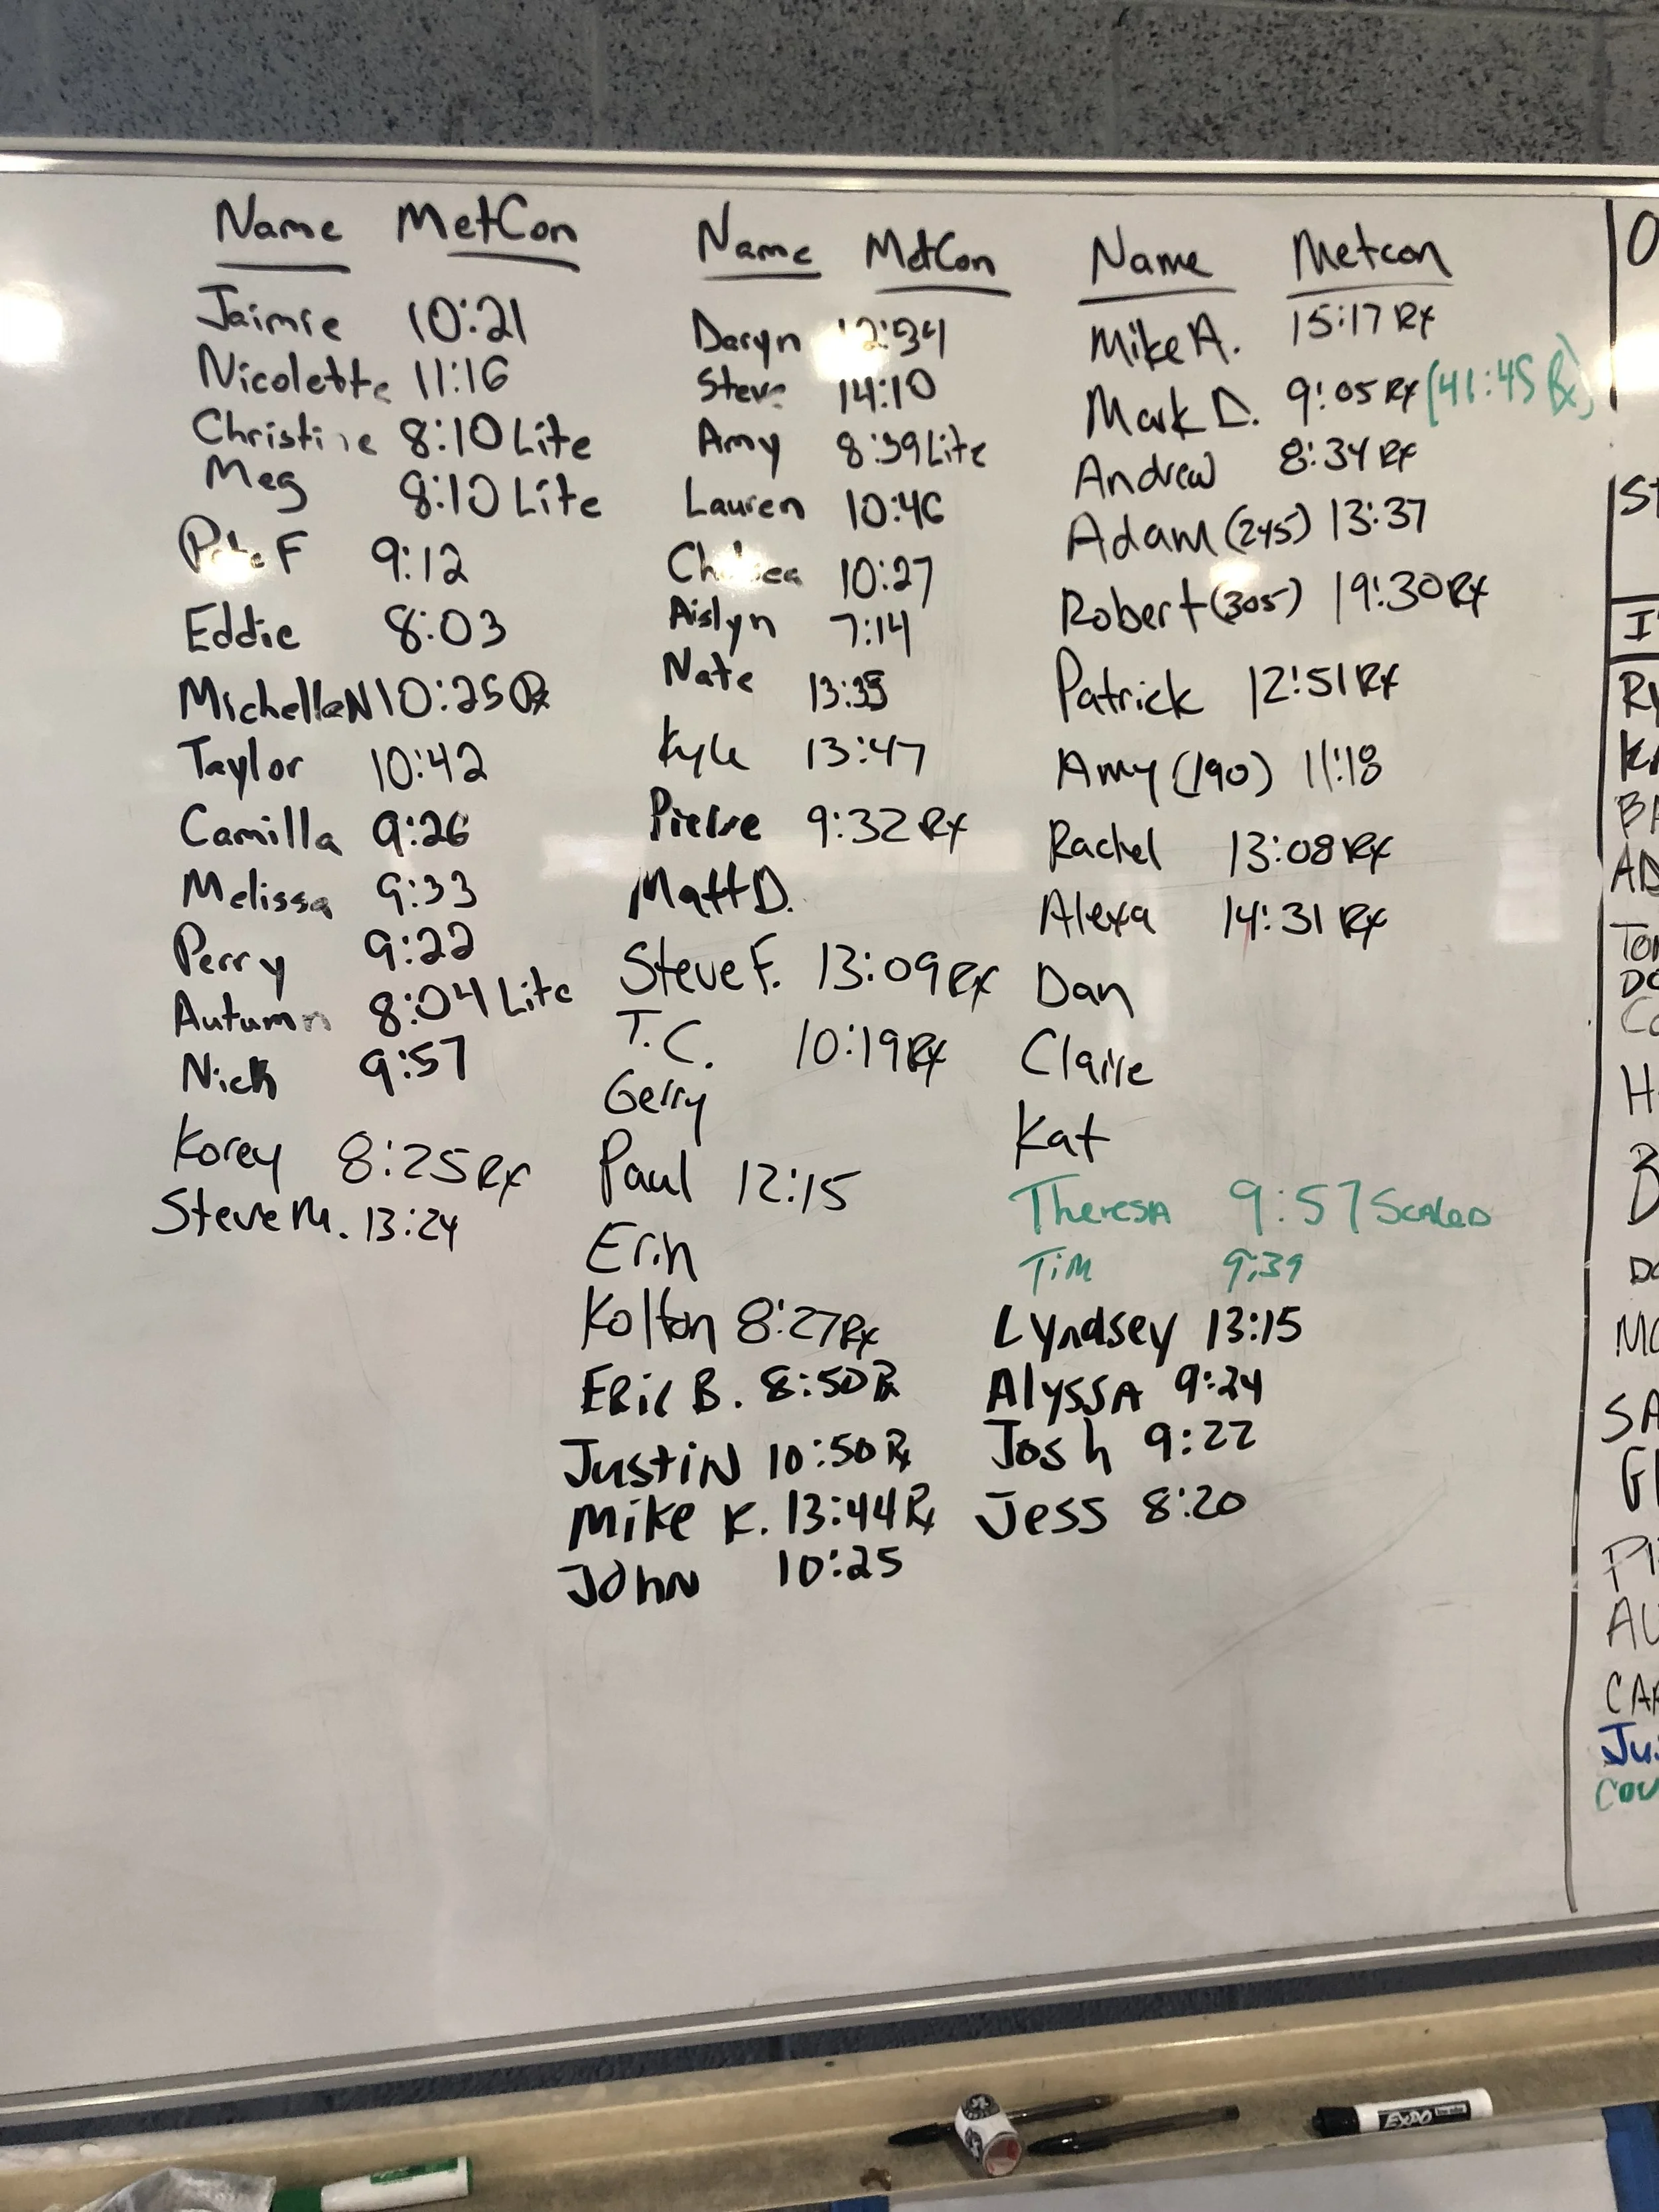 Name MetCon
Jaimie 10:21
Nicolette 11:16
Christine 8:10 Lite
Meg 8:10 Lite
Pete F 9:12
Eddie 8:03
Michelle N 10:25 Rx
Taylor 10:42
Camilla 9:26
Melissa 9:33
Perry 9:22
Autumn 8:04 Lite
Nick 9:57
Korey 8:25 Rx
Steve M. 13:24
Name MetCon
Daryn 12:34
Steve 14:10
Amy 8:39 Lite
Lauren 10:46
Chelsea 10:27
Aislyn 7:14
Nate
Kyle 13:47
Pierre 9:32 Rx
Matt D.
Steve F. 13:09 Rx
T.C. 10:19 Rx
Gerry
Paul 12:15
Erin
Kolton 8:27 Rx
Eric B. 8:50 Rx
Justin 10:50 Rx
Mike K. 13:44 Rx
John 10:25
Name Metcon
Mike A. 15:17 Rx
Mark D. 9:05 Rx (41:45 Rx)
Andrew 8:34 Rx
Adam (245) 13:37
Robert (305) 19:30 Rx
Patrick 12:51 Rx
Amy (190) 11:18
Rachel 13:08 Rx
Alexa 14:31 Rx
Dan
Claire
Kat
Theresa 9:57 Scaled
Tim 9:39
Lyndsey 13:15
Alyssa 9:24
Josh 9:22
Jess 8:20
EXPO